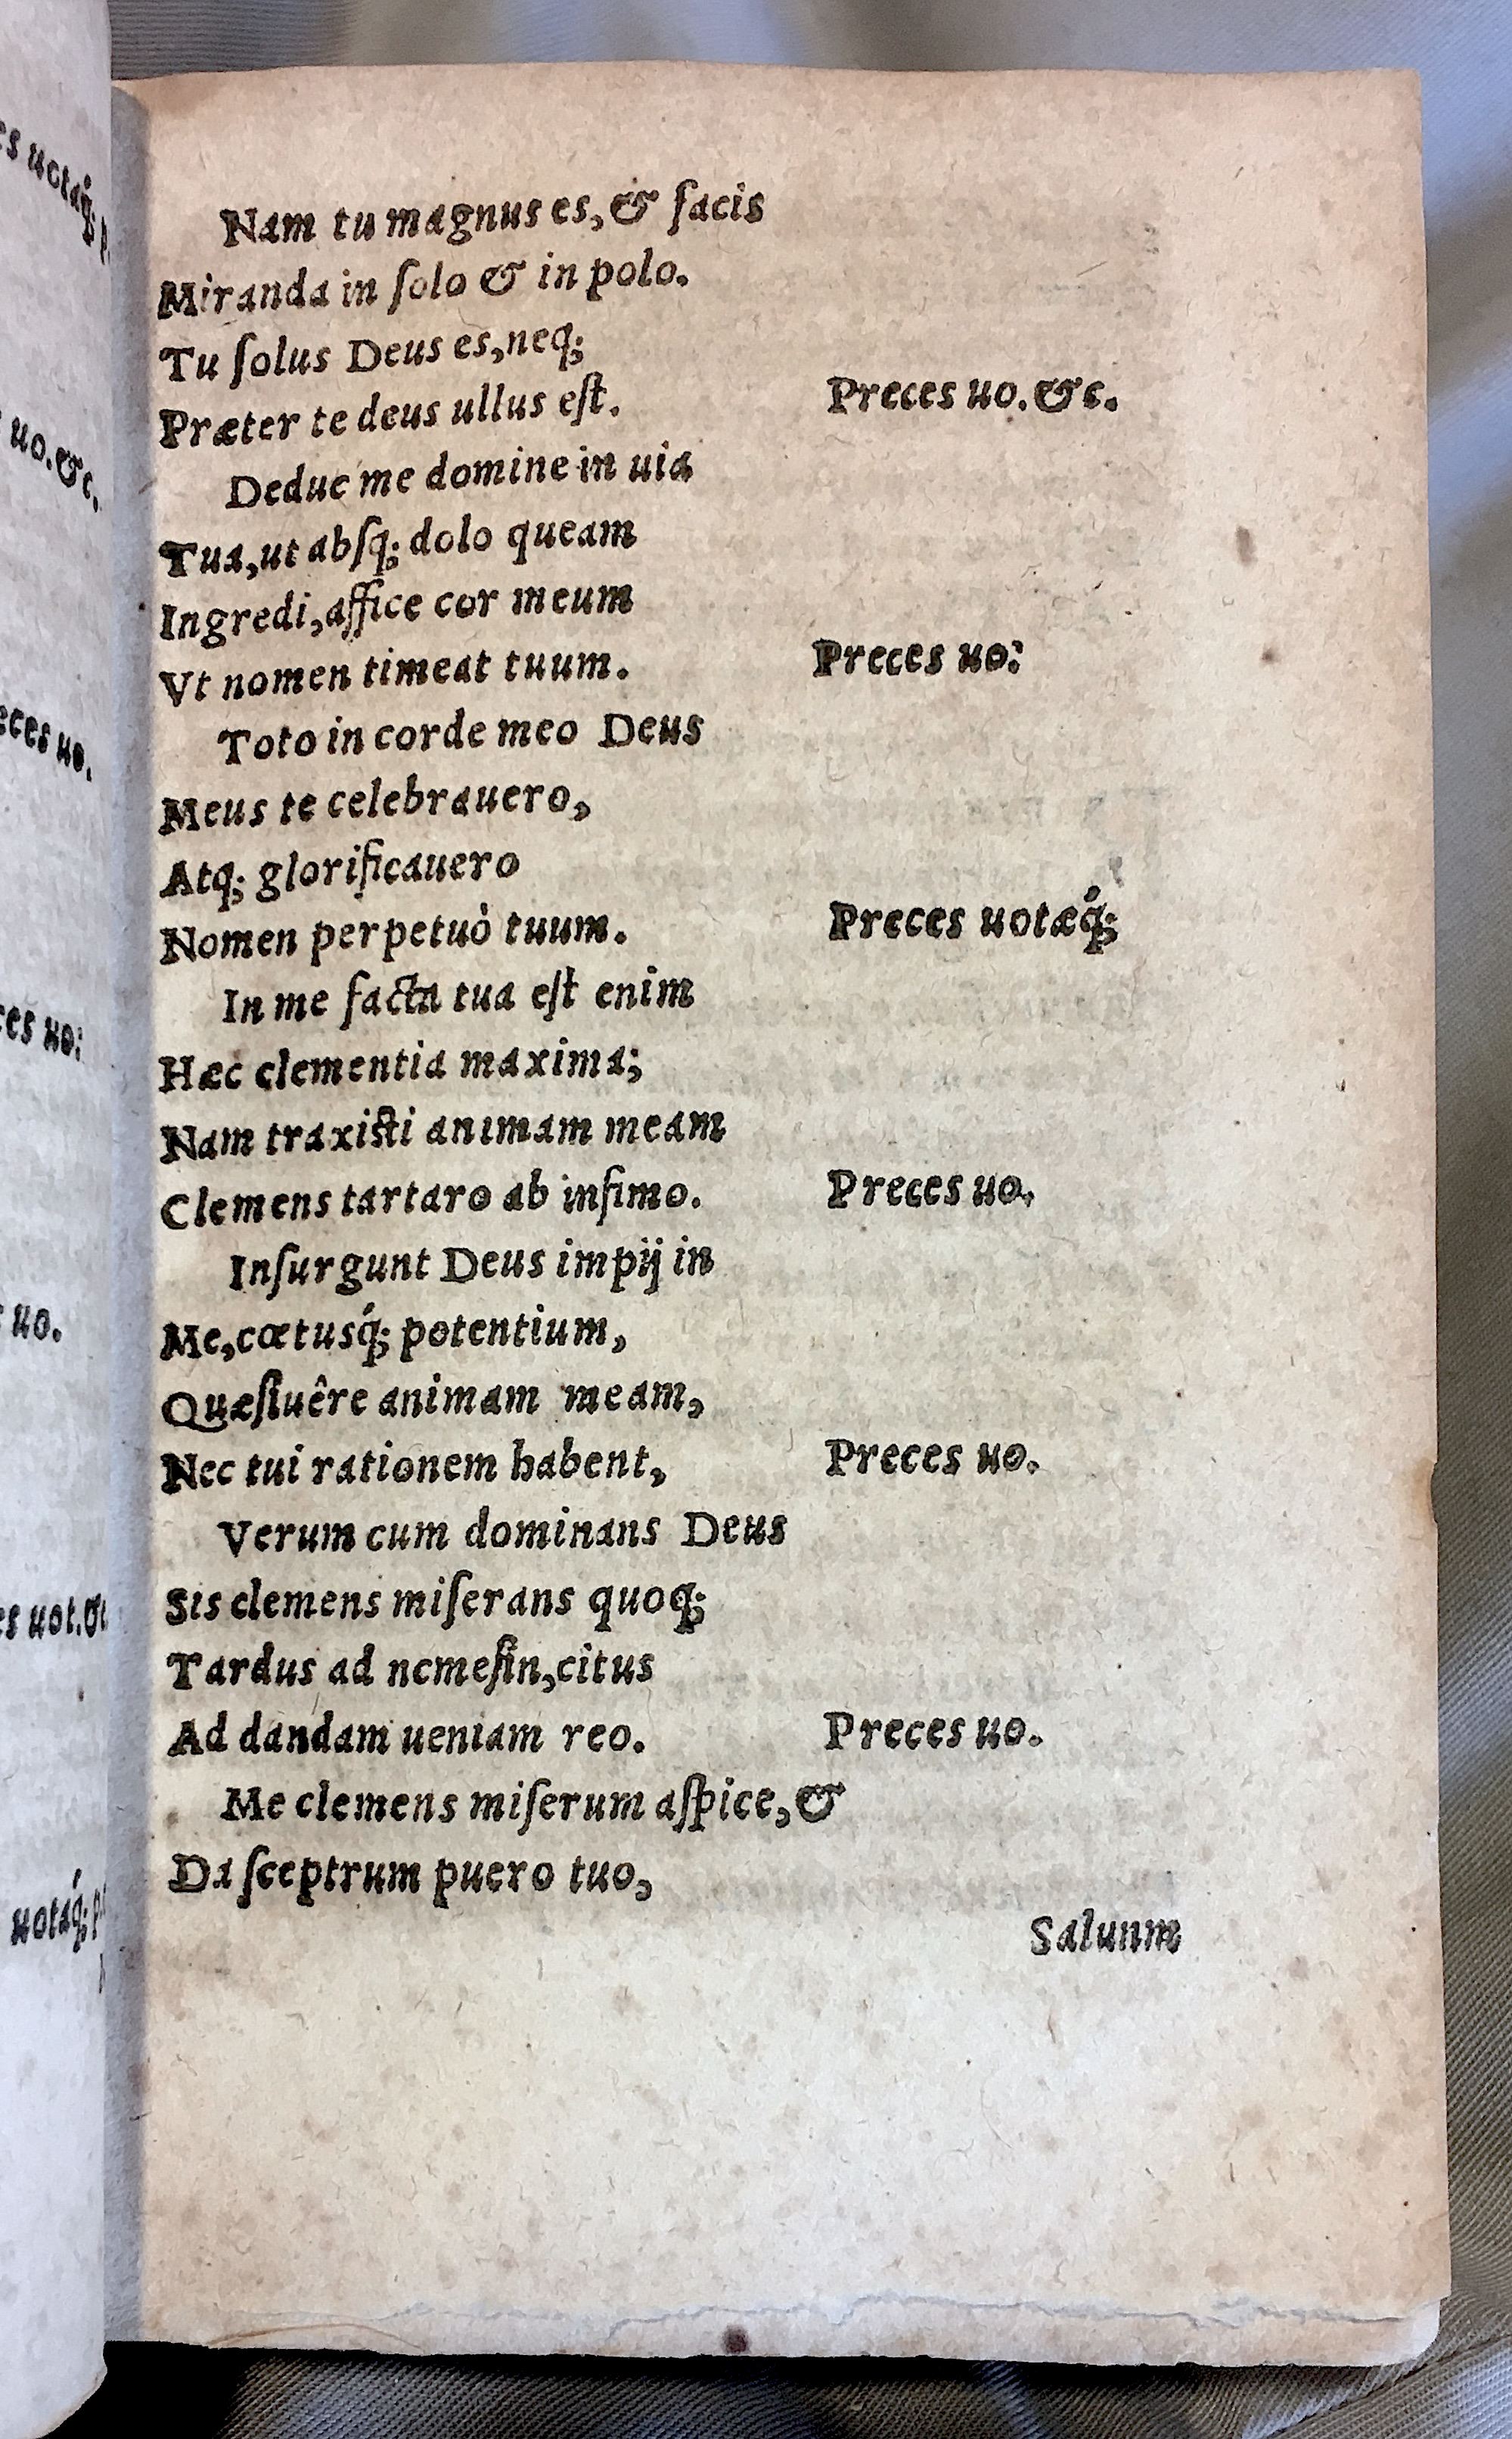 Nam tu magnus es, & facis
Miranda in ſolo & in polo.
Tu ſolus Deus es, neq;
Præter te deus ullus eſt. Preces uo. &c.
Deduc me domine in uia
Tua, ut abſq; dolo queam
Ingredi, affice cor meum
Vt nomen timeat tuum. Preces uo:
Toto in corde meo Deus
Meus te celebrauero,
Atq; glorificauero
Nomen perpetuò tuum. Preces uotæq́;
In me facta tua eſt enim
Hæc clementia maxima;
Nam traxiſti animam meam
Clemens tartaro ab infimo. Preces uo.
Inſurgunt Deus impij in
Me, cœtusq́; potentium,
Quæſiuêre animam meam,
Nec tui rationem habent, Preces uo.
Verum cum dominans Deus
Sis clemens miſerans quoq;
Tardus ad nemeſin, citus
Ad dandam ueniam reo. Preces uo.
Me clemens miſerum aſpice, &
Da ſceptrum puero tuo,
Salunm